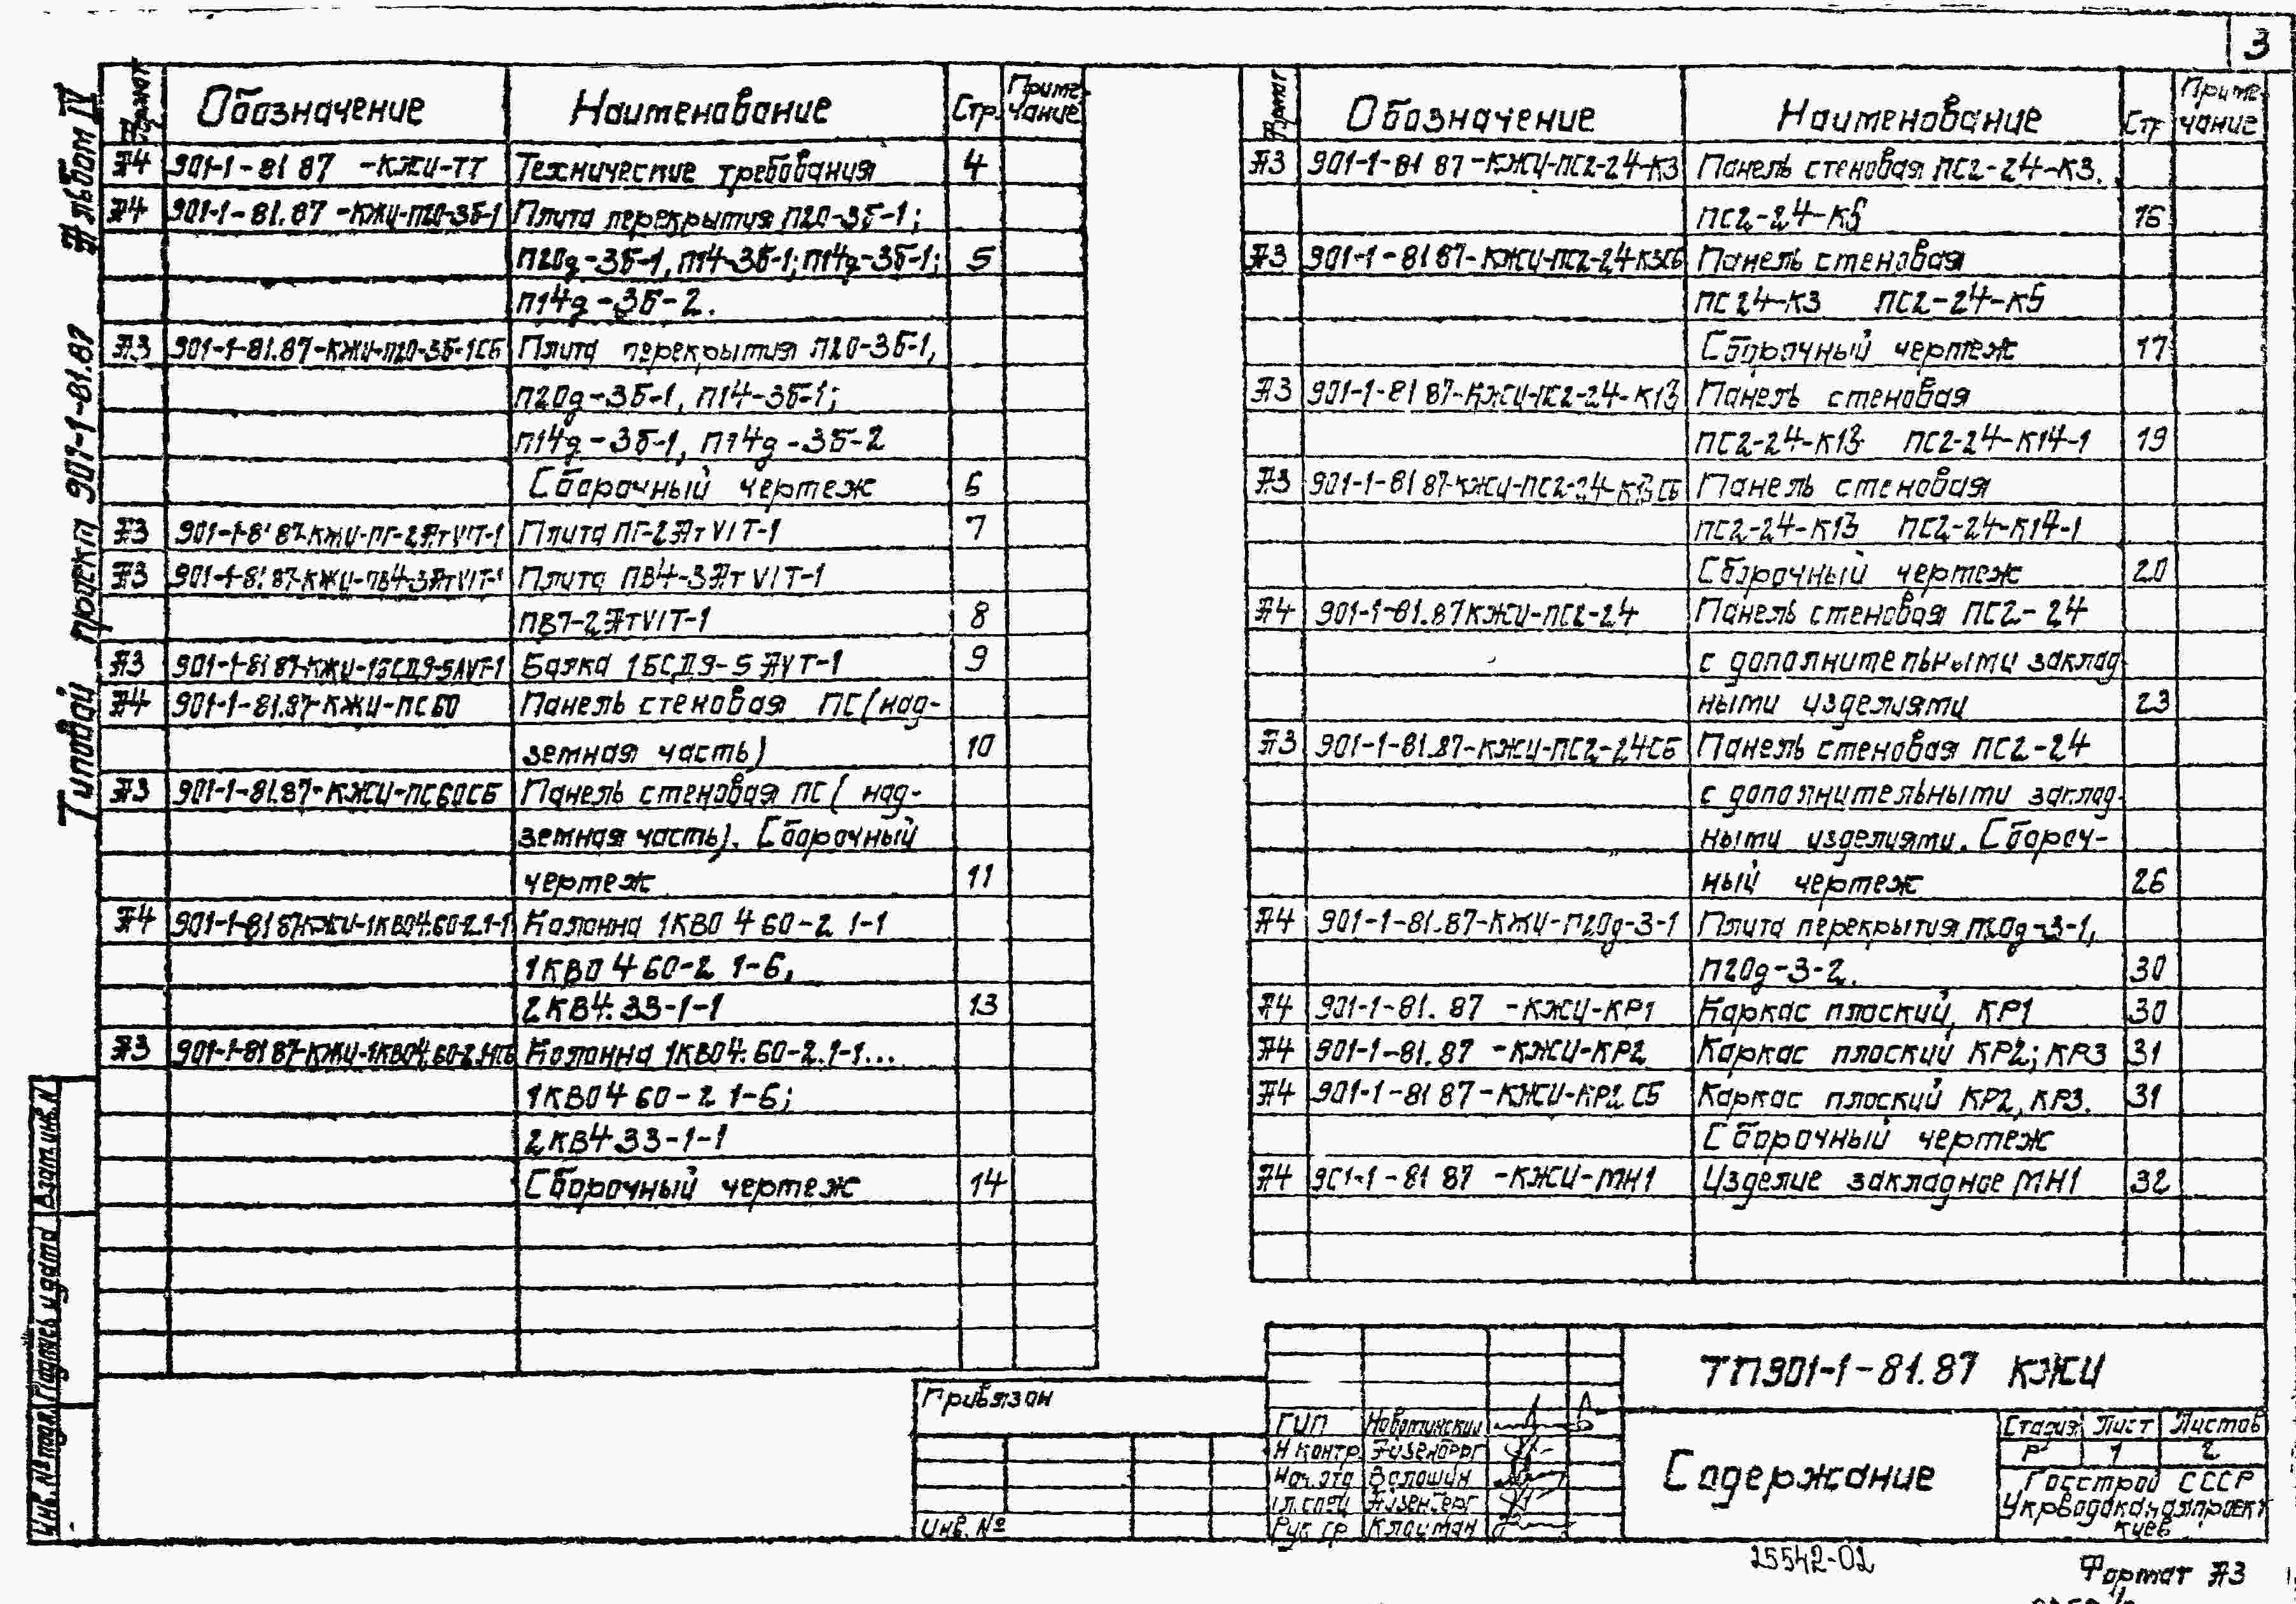 3
Альбом IV
Типовой проект 901-1-81.87
Формат Обозначение Наименование Стр. Приме-чание
А4 901-1-81 87 -КЖИ-ТТ Технические требования 4
А4 901-1-81.87 -КЖИ-П20-3Б-1 Плита перекрытия П20-3Б-1;
П20д-3Б-1, П14-3Б-1; П14д-3Б-1; 5
П14д-3Б-2.
А3 901-1-81.87-КЖИ-П20-3Б-1СБ Плита перекрытия П20-3Б-1,
П20д-3Б-1, П14-3Б-1;
П14д-3Б-1, П14д-3Б-2
Сборочный чертеж 6
А3 901-1-81 87-КЖИ-ПГ-2АтVIТ-1 Плита ПГ-2АтVIТ-1 7
А3 901-1-81.87-КЖИ-ПВ4-3АтVIТ-1 Плита ПВ4-3АтVIТ-1
ПВ7-2АтVIТ-1 8
А3 901-1-81 87-КЖИ-1БСД9-5АVТ-1 Балка 1БСД9-5АVТ-1 9
А4 901-1-81.87-КЖИ-ПС60 Панель стеновая ПС(над-
земная часть) 10
А3 901-1-81.87-КЖИ-ПС60СБ Панель стеновая ПС( над-
земная часть). Сборочный
чертеж 11
А4 901-1-81 87КЖИ-1КВ04.60-2.1-1 Колонна 1КВ0 4 60-2 1-1
1КВ0 4 60-2 1-6,
2КВ4.33-1-1 13
А3 Колонна 1КВ04.60-2.1-1...
1КВ04 60-2 1-6;
2КВ4 33-1-1
Сборочный чертеж 14
Формат Обозначение Наименование Стр Приме-чание
А3 901-1-81 87-КЖИ-ПС2-24-К3 Панель стеновая ПС2-24-К3.
ПС2-24-К5 16
А3 901-1-81 87-КЖИ-ПС2-24-К3СБ Панель стеновая
ПС 24-К3 ПС2-24-К5
Сборочный чертеж 17
А3 901-1-81 87-КЖИ-ПС2-24-К13 Панель стеновая
ПС2-24-К13 ПС2-24-К14-1 19
А3 901-1-81 87-КЖИ-ПС2-24-К13СБ Панель стеновая
ПС2-24-К13 ПС2-24-К14-1
Сборочный чертеж 20
А4 901-1-81.87КЖИ-ПС2-24 Панель стеновая ПС2-24
с дополнительными заклад-
ными изделиями 23
А3 901-1-81.87-КЖИ-ПС2-24СБ Панель стеновая ПС2-24
с дополнительными заклад-
ными изделиями. Сбороч-
ный чертеж 26
А4 901-1-81.87-КЖИ-П20д-3-1 Плита перекрытия П20д-3-1,
П20д-3-2. 30
А4 901-1-81. 87 -КЖИ-КР1 Каркас плоский, КР1 30
А4 901-1-81.87 -КЖИ-КР2 Каркас плоский КР2; КР3 31
А4 901-1-81 87 -КЖИ-КР2 СБ Каркас плоский КР2, КР3. 31
Сборочный чертеж
А4 901-1-81 87 -КЖИ-МН1 Изделие закладное МН1 32
Взам.инв.N
Подпись и дата
Инв. № подл.
Привязан
Инв. №
ГИП
Н контр. Эйзенберг
Нач. отд Волошин
Гл.спец Эйзенберг
Рук гр Клоцман
ТП901-1-81.87 КЖИ
Содержание
Стадия Лист Листов
Р 1 2
Госстрой СССР
Укрводоканалпроект
Киев
25542-02
Формат А3